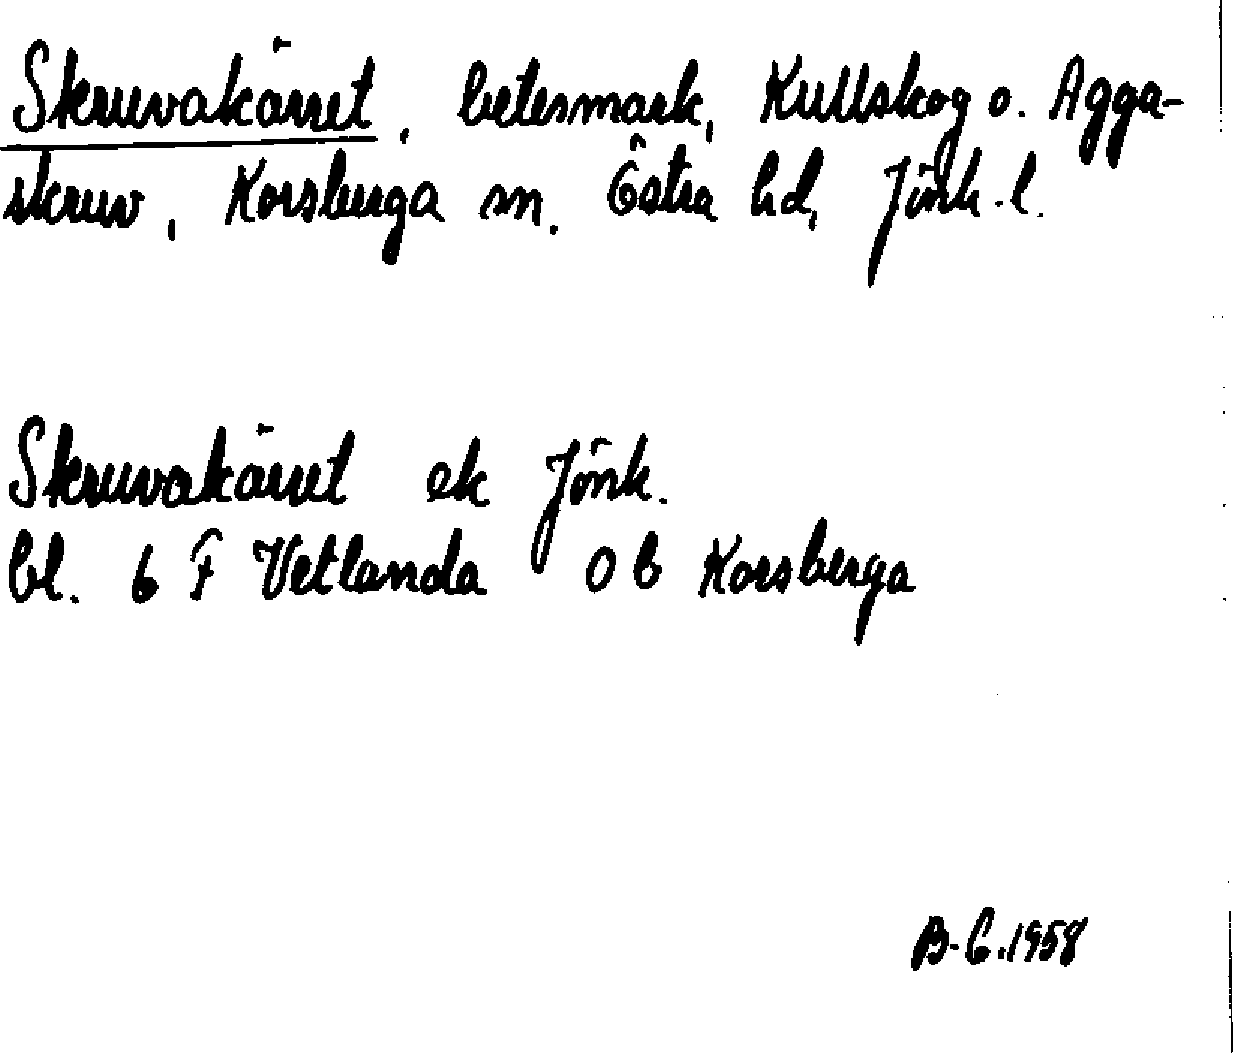 Skruvakärret, betesmark, Kullskog o. Agga-
skruv, Korsberga sn. Östra hd, Jönk. l.
Skruvakärret ek Jönk.
bl. 6 F Vetlanda 0 b Korsberga
B-G.1958